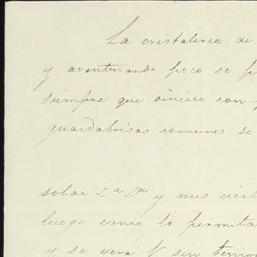 La cristaleria de
y aventurando poco se p
siempre que viniese con
guardabrisas comunes se
solas 2ª Dª y mas
luego como lo permita
y se verá V sin temor